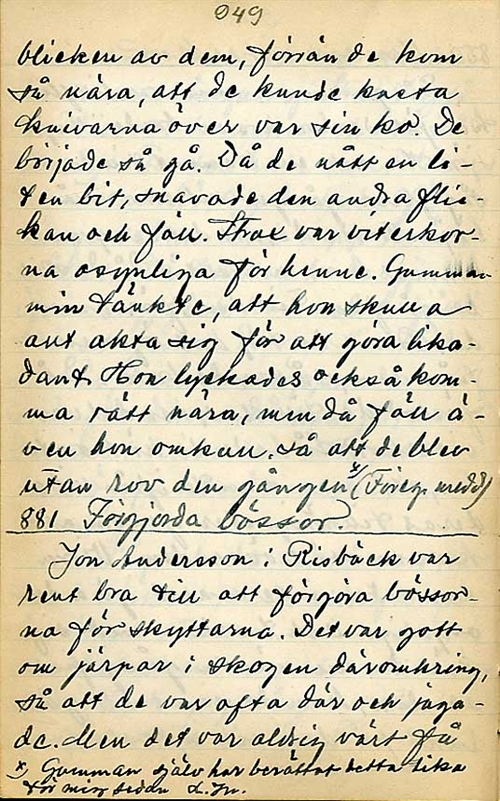 949
blicken av dem, förrän de kom
så nära, att de kunde kasta
knivarna över var sin ko. De
började så gå. Då de nått en li-
ten bit, snavade den andra flic-
kan och föll. Strax var viterkor-
na osynliga för henne. Gumman
min tänkte, att hon skulle
akta sig för att göra lika-
dant. Hon lyckades också kom-
ma rätt nära, men då föll ä-
ven hon omkull, så att de blev
utan rov den gången x) (Föreg. medd)
881 Förgjorda bössor.
Jon Andersson i Risbäck var
rent bra till att förgöra bössor-
na för skyttarna. Det var gott
om järpar i skogen däromkring,
så att de var ofta där och jaga-
de. Men det var aldrig värt få
x) Gumman själv har berättat detta lika
för mig sedan